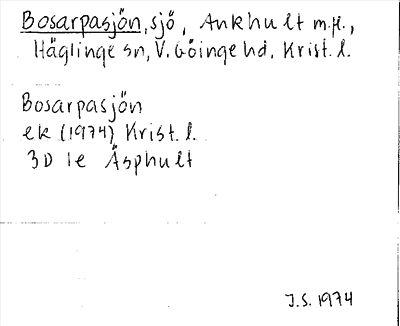 Bosarpasjön, sjö, Ankhult m.fl.,
Häglinge sn, V. Göinge hd, Krist. l.
Bosarpasjön
ek (1974) Krist. l.
3D 1e Äsphult
J.S. 1974